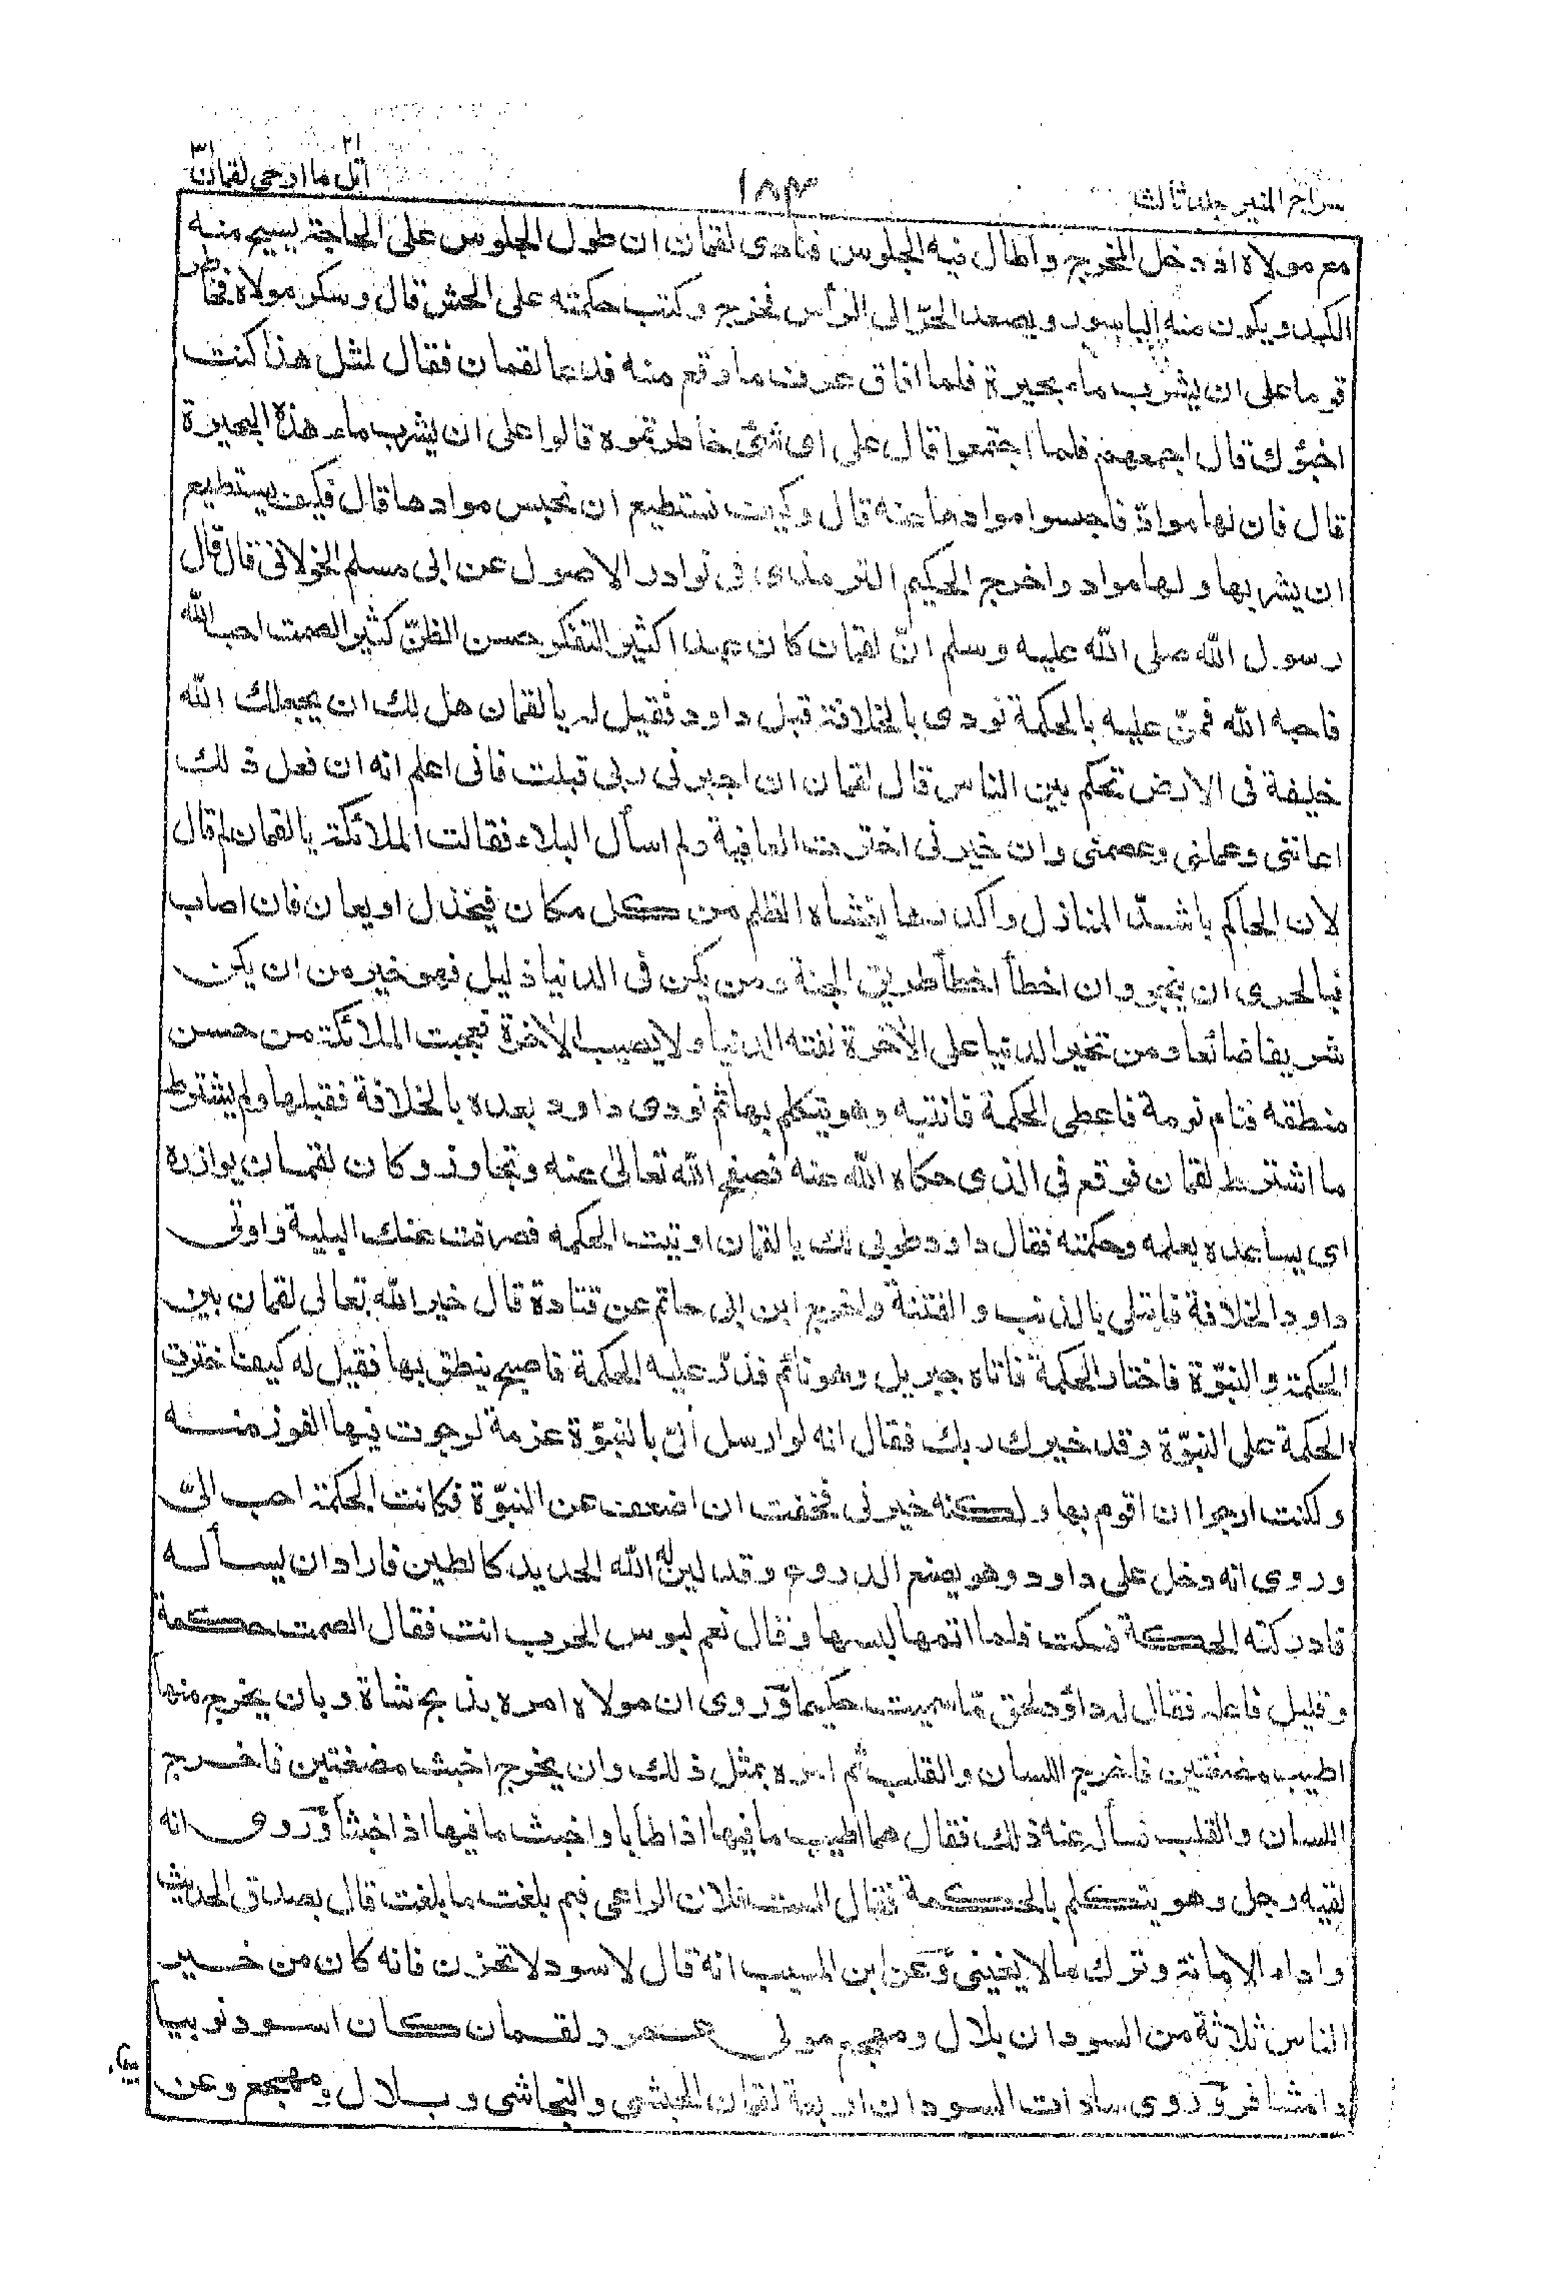 سراج المنير جلد ثالث
١٨٣
٢١
اتل ما اوحى لقمان
٣١
مع مولاه اذ دخل المخرج واطال فيه الجلوس فنادى لقمان ان طول الجلوس على الحاجة يسيم منه
الكبد ويكون منه الباسور ويصعد الحرّ الى الرأس فخرج وكتب حكمته على الحش قال وسكر مولاه فخاطر
قوما على ان يشرب ماء بحيرة فلما افاق عرف ما وقع منه فدعا لقمان فقال لمثل هذا كنت
اخبؤك قال اجمعهم فلما اجتمعوا قال على اى شئ خاطرتموه قالوا على ان يشرب ماء هذه البحيرة
قال فان لها موادّ فاحبسوا موادها عنه قال وكيف نستطيع ان نحبس موادها قال فكيف يستطيع
ان يشربها ولها مواد واخرج الحكيم الترمذى فى نوادر الاصول عن ابى مسلم الخولانى قال قال
رسول الله صلى الله عليه وسلم انّ لقمان كان عبدا كثير التفكر حسن الظنّ كثير الصمت احب الله
فاحبه الله فمنّ عليه بالحكمة نودى بالخلافة قبل داود فقيل له يا لقمان هل لك ان يجعلك الله
خليفة فى الارض تحكم بين الناس قال لقمان ان اجبرنى ربى قبلت فانى اعلم انه ان فعل ذلك
اعاننى وعلمنى وعصمنى وان خيرنى اخترت العافية ولم اسأل البلاء فقالت الملائكة يا لقمان لم قال
لان الحاكم باشدّ المنازل واكدرها يغشاه الظلم من كل مكان فيخذل او يعان فان اصاب
فبالحرى ان ينجو وان اخطأ اخطأ طريق الجنة ومن يكن فى الدنيا ذليل فهو خير من ان يكن
شريفا ضائعا ومن تخير الدنيا على الآخرة نفته الدنيا ولا يصيب الآخرة فعجبت الملائكة من حسن
منطقه فنام نومة فاعطى الحكمة فانتبه وهو يتكلم بها ثم نودى داود بعده بالخلافة فقبلها ولم يشترط
ما اشترط لقمان فوقع فى الذى حكاه الله عنه فصفح الله تعالى عنه وتجاوز وكان لقمان يوازره
اى يساعده بعلمه وحكمته فقال داود طوبى لك يا لقمان اوتيت الحكمه فصرفت عنك البلية واوتى
داود الخلافة فابتلى بالذنب والفتنة واخرج ابن ابى حاتم عن قتادة قال خير الله تعالى لقمان بين
الحكمة والنبوّة فاختار الحكمة فاتاه جبريل وهو نائم فذرّ عليه الحكمة فاصبح ينطق بها فقيل له كيف اخترت
الحكمة على النبوّة وقد خيرك ربك فقال انه لو ارسل الىّ بالنبوّة عزمة لرجوت فيها الفوز منه
ولكنت ارجوا ان اقوم بها ولكنه خيرنى فخفت ان اضعف عن النبوّة فكانت الحكمة احب الىّ
وروى انه دخل على داود وهو يصنع الدروع وقد لين له الله الحديد كالطين فاراد ان يسأله
فادركته الحكمة فسكت فلما اتمها لبسها وقال نعم لبوس الحرب انت فقال الصمت حكمة
وقليل فاعله فقال له داود لحق ما سميت حكيما وروى ان مولاه امره بذبح شاة وبان يخرج منها
اطيب مضغتين فاخرج اللسان والقلب ثم امره بمثل ذلك وان يخرج اخبث مضغتين فاخرج
اللسان والقلب فسأله عنه ذلك فقال هما اطيب ما فيها اذا طابا واخبث ما فيها اذا خبثا وروى انه
لقيه رجل وهو يتكلم بالحكمة فقال الست فلان الراعى فبم بلغت ما بلغت قال بصدق الحديث
واداء الامانة وترك ما لا يعنينى وعن ابن المسيب انه قال لاسود لا تحزن فانه كان من خير
الناس ثلاثة من السودان بلال ومهجع مولى عمر ولقمان كان اسود نوبيا
ذا مشافر وروى سادات السودان اربعة لقمان الحبشى والنجاشى وبلال ومهجع وعن